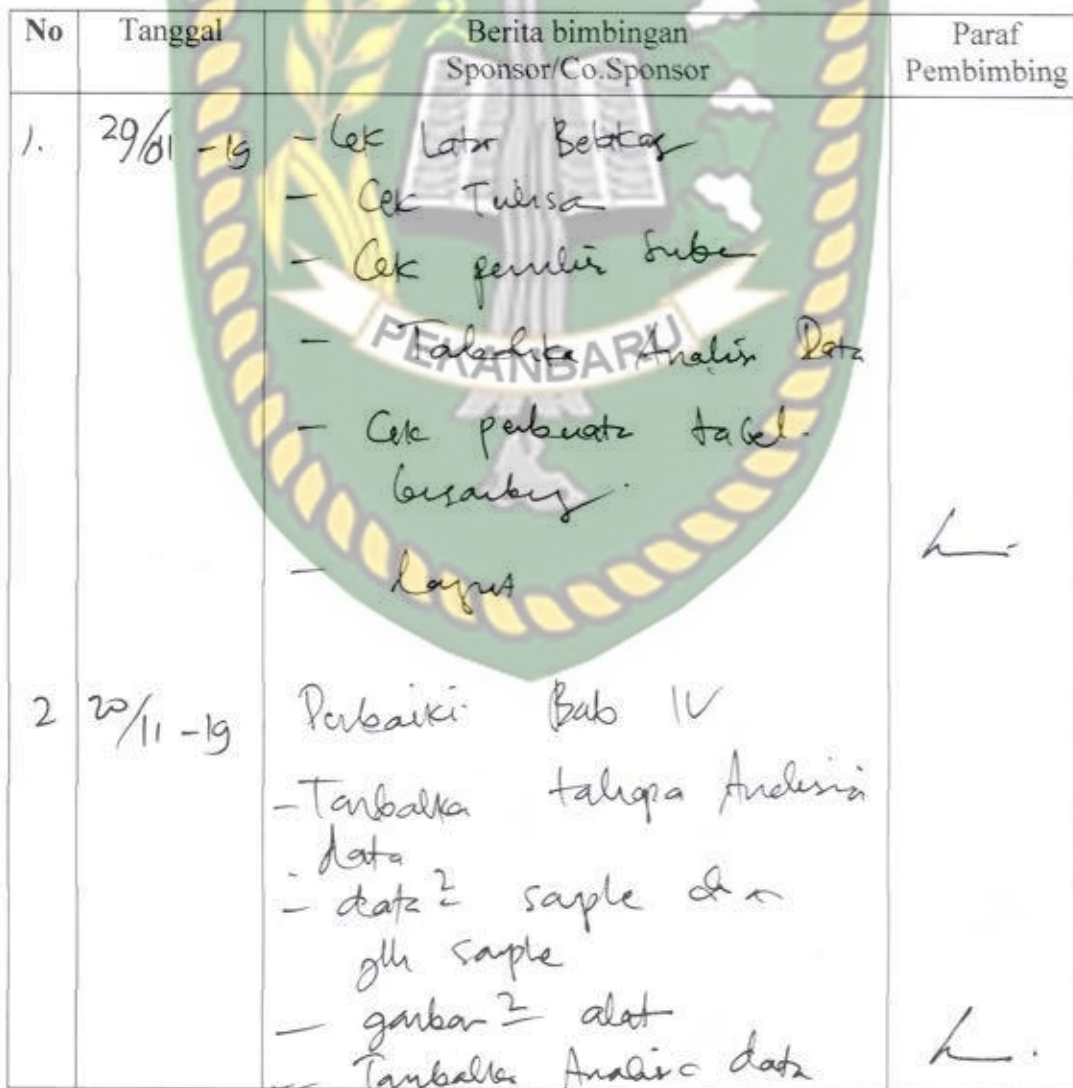 No Tanggal Berita bimbingan Paraf
Sponsor/Co.Sponsor Pembimbing
1. 29/01-19 - Cek Latar Belakag
- Cek Tulisa
- Cek penulis Sube
- Analisis Data
PEKANBARU
- Cek pembuata tabel.
- Lanjut
2 20/11-19 Perbaiki Bab IV
- Tambahka tahapa Analisis
data
- data² sample dan
jlh sample
- gambar² alat
- Tambahka Analisa data